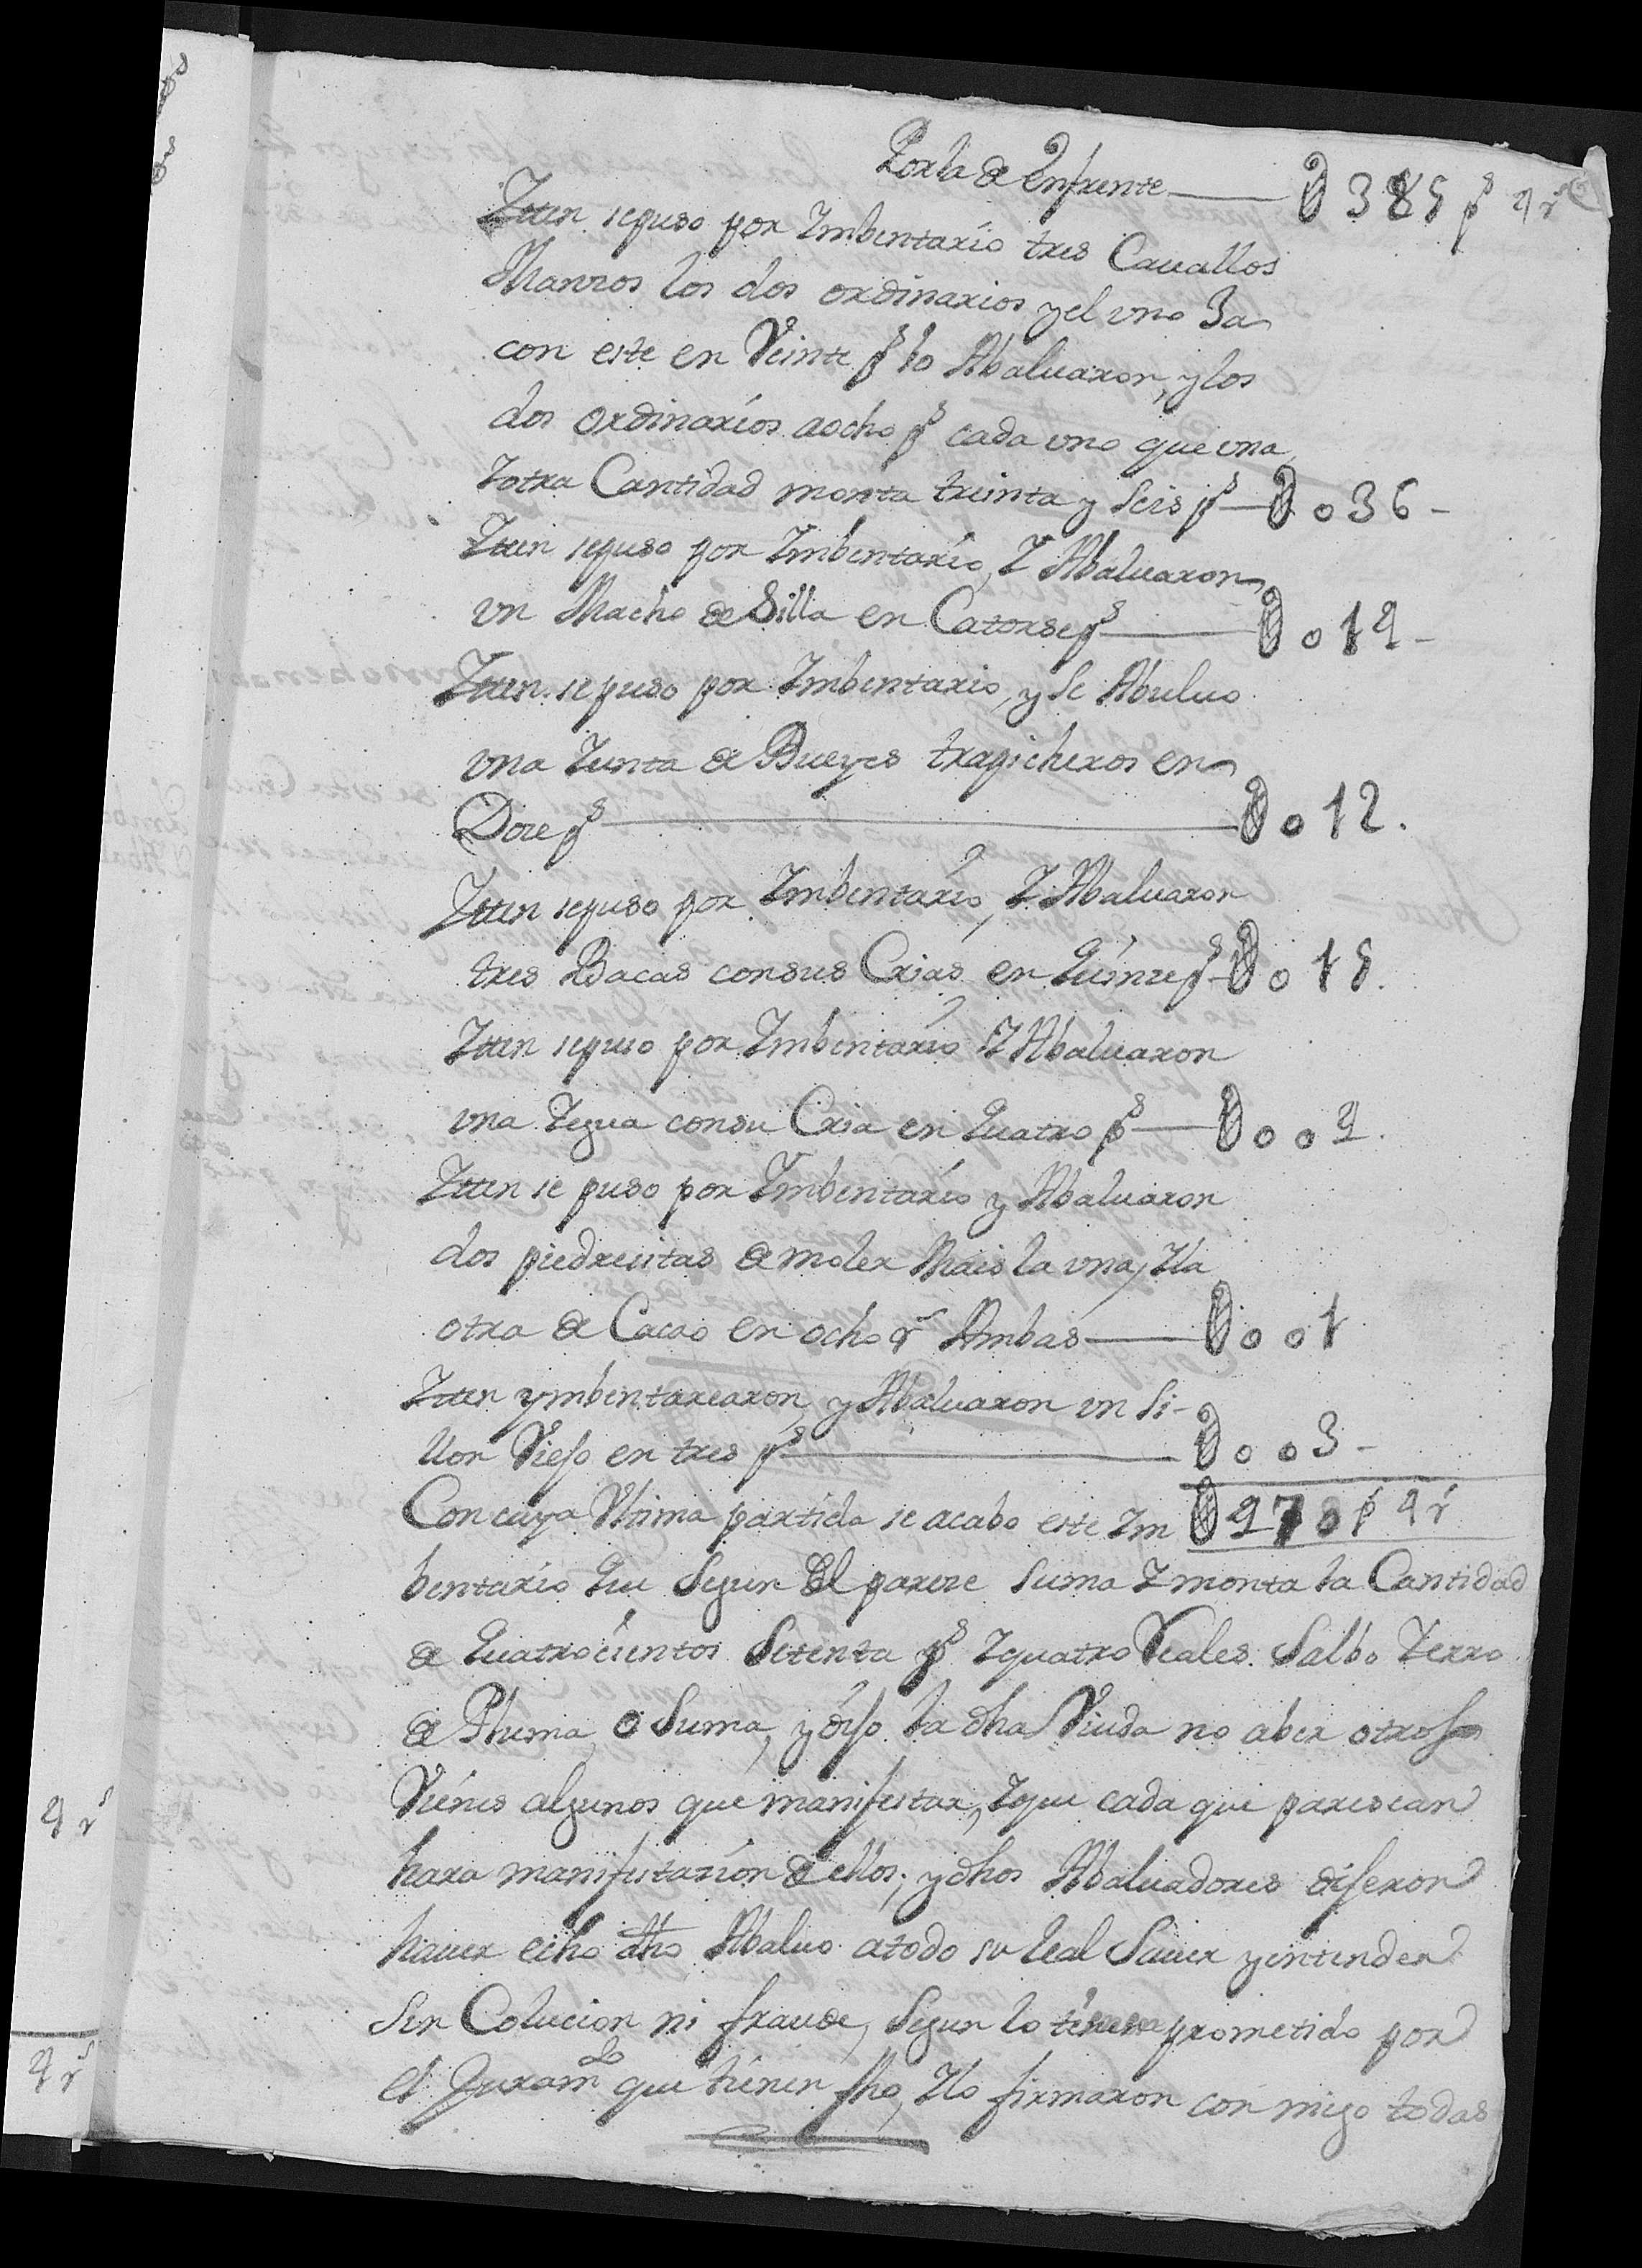 Por la de Enfrente — U 385 ps 4 rs
Ytten se puso por Imbentario tres Cauallos
Manzos los dos ordinarios y el vno Ba
con este en Veinte ps lo Abaluaron, y los
dos ordinarios a ocho ps cada vno que vna
Y otra Cantidad monta treinta y Seis ps — U o 36 -
Ytten se puso por Imbentario, Y Abaluaron
vn Macho de Silla en Catorse ps — U o 14 -
Ytten se puso por Imbentario, y Se Abaluo
vna Yunta de Bueyes trapicheros en
Doze ps — U o 12.
Ytten se puso por Imbentario, Y Abaluaron
tres Bacas con sus Crias en Quinze ps — U o 15.
Ytten se puso por Imbentario Y Abaluaron
vna Yegua con su Cria en Quatro ps — U o o 4.
Ytten se puso por Imbentario y Abaluaron
dos piedresitas de moler Mais la vna, Y la
otra de Cacao en ocho rs Ambas — U o o 1
Ytten ymbentarearon, y Abaluaron vn Si-
llon Viejo en tres ps — U o o 3 -
Con cuya Vltima partida se acabo este Im U 470 ps 4 rs
bentario Que Segun El pareze Suma Y monta la Cantidad
de Quatrocientos Setenta ps Y quatro Reales Salbo Yerro
de Pluma, o Suma, y dijo la dha Viuda no aber otros
Vienes algunos que manifestar, Y que cada que parescan
hara manifestazion de ellos; y dhos Abaluadores dijeron
hauer echo dho Abaluo a todo su leal Sauer y entender
Sin Colucion ni fraude, Segun lo tienen prometido por
el Juramto que tienen fho, Y lo firmaron con migo todas
4 rs
4 rs